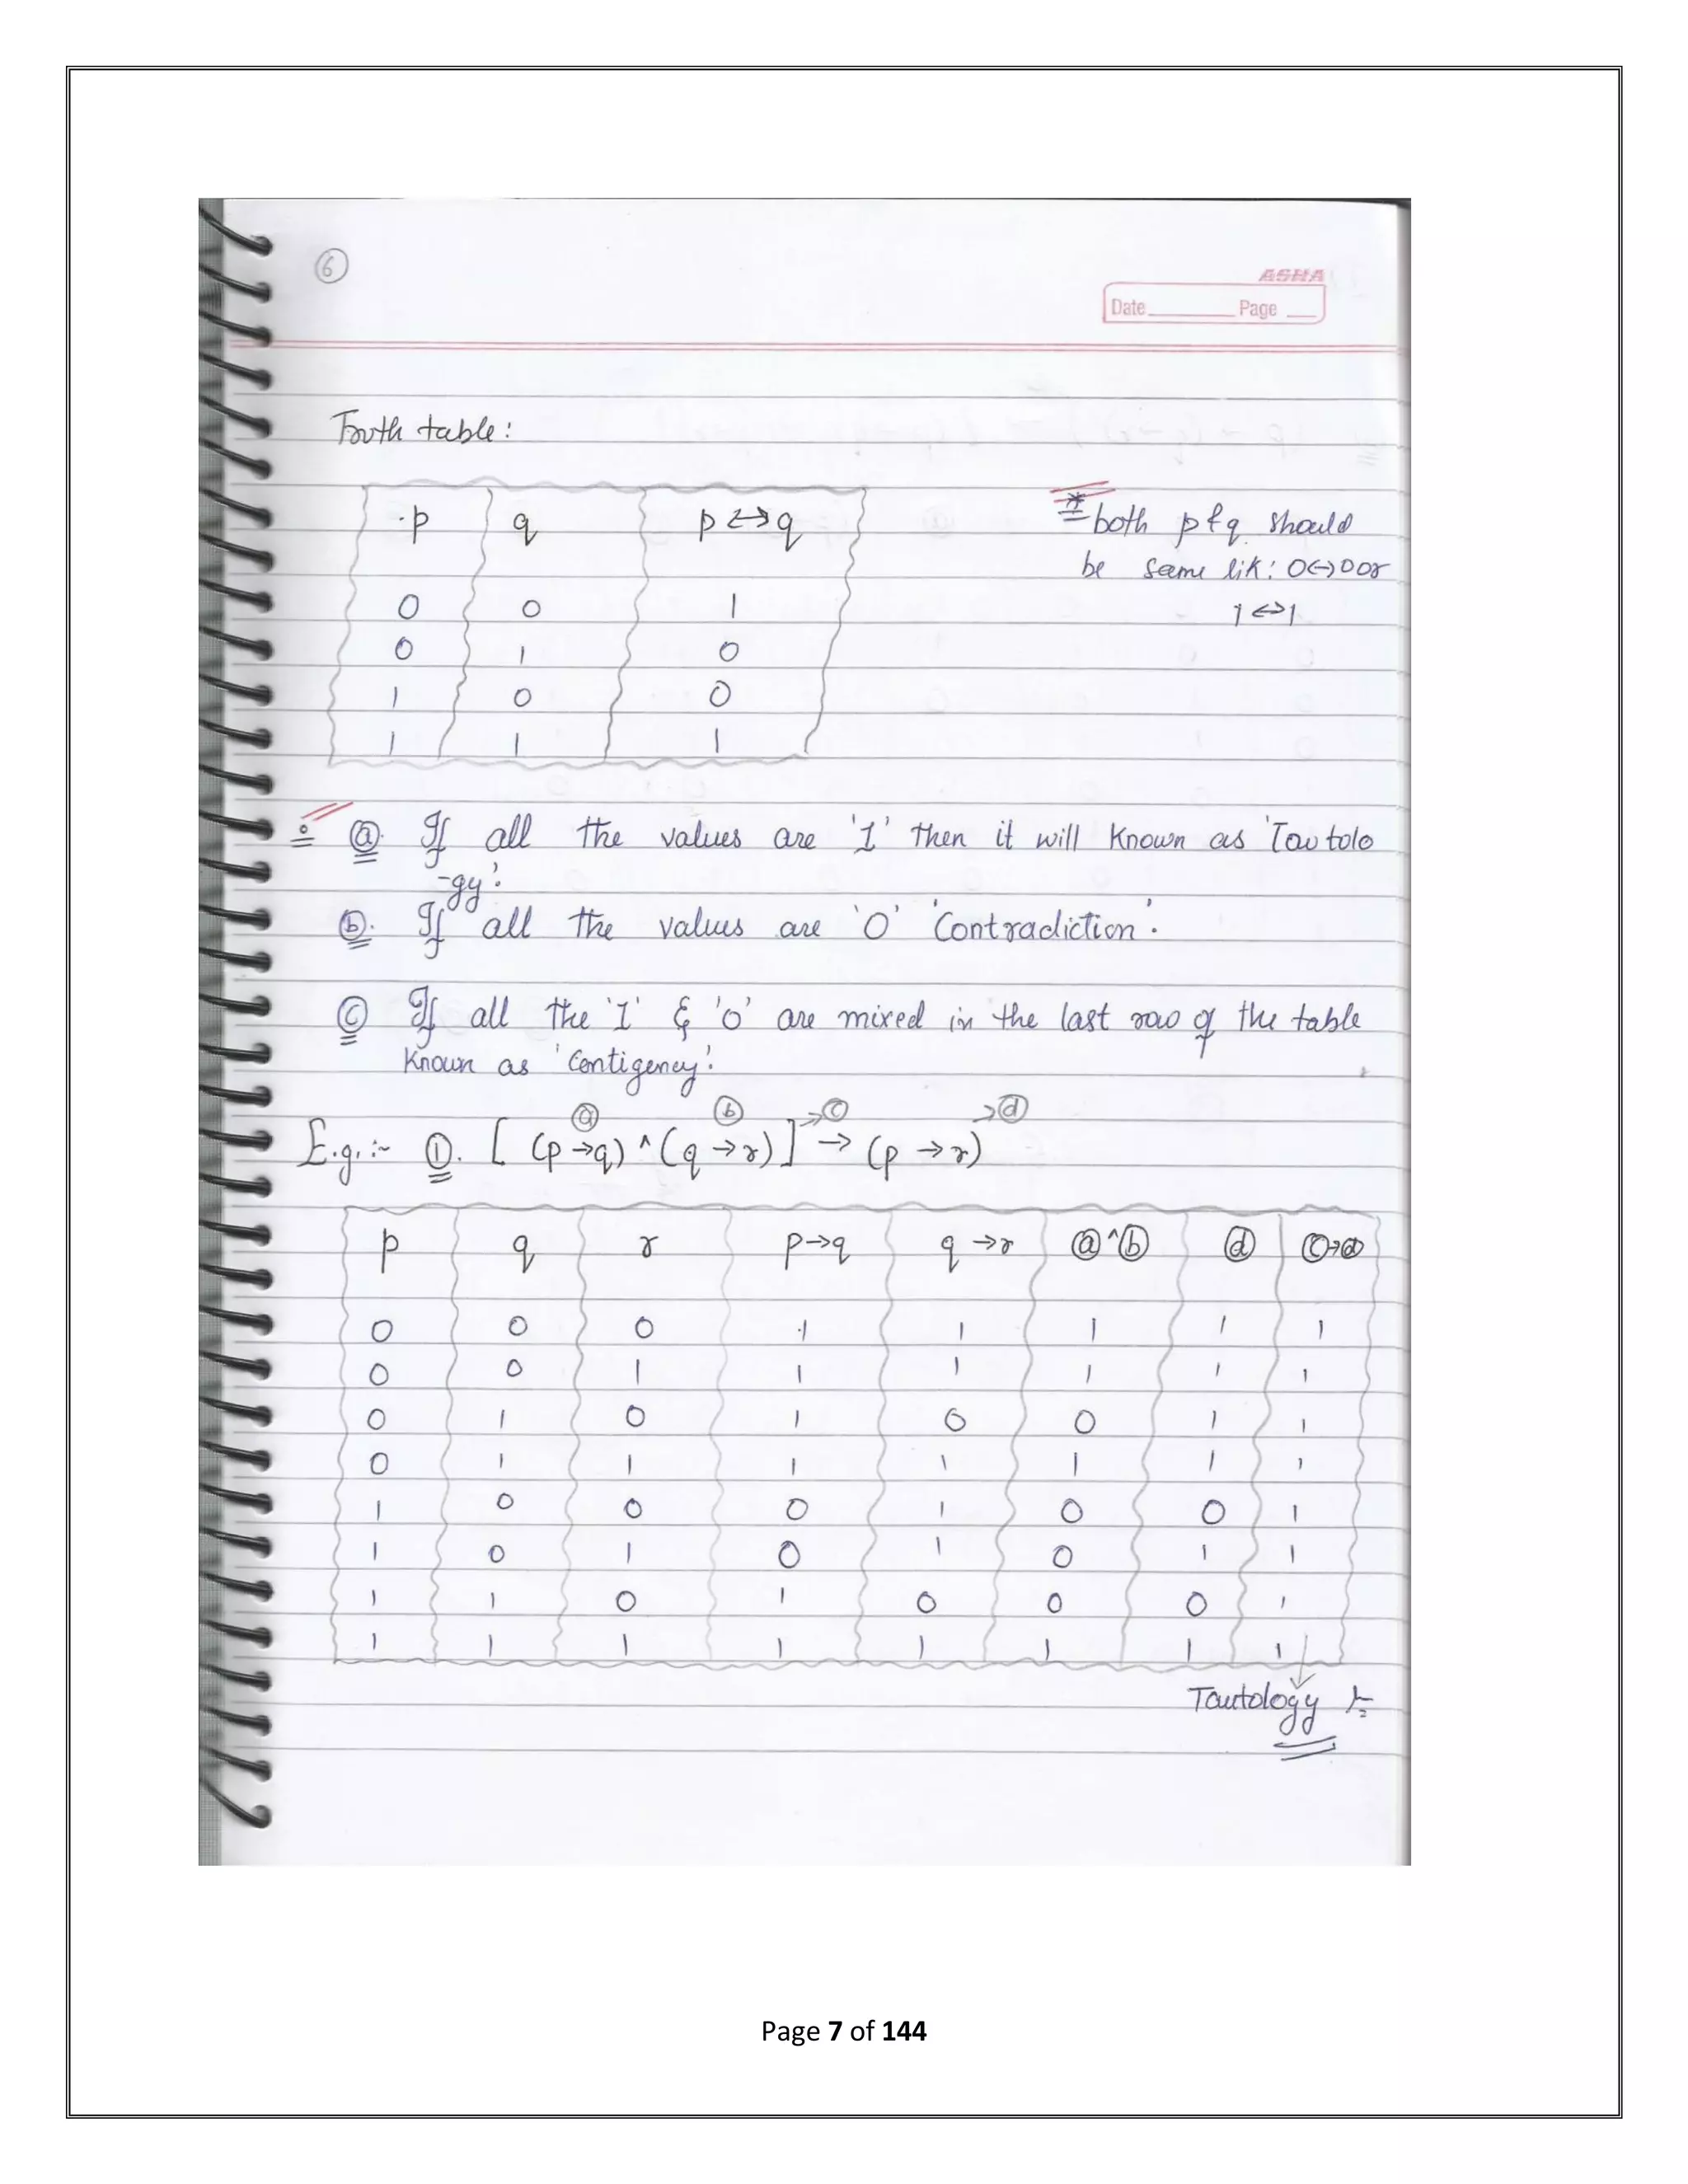 6
ASHA
Date Page
Trouth table:
p q p ↔ q
0 0 1
0 1 0
1 0 0
1 1 1
* both p & q should
be same lik: 0↔0 or
1 ↔ 1
ⓐ. If all the values are '1' then it will Known as 'Tautolo
-gy'.
ⓑ. If all the values are '0' 'Contradiction'.
ⓒ If all the '1' & '0' are mixed in the last row of the table
Known as 'Contigency'.
ⓐ ⓑ →ⓒ →ⓓ
E.g. :- ①. [ (p → q) ^ (q → r) ] → (p → r)
p q r p→q q →r ⓐ^ⓑ ⓓ ⓒ→ⓓ
0 0 0 1 1 1 1 1
0 0 1 1 1 1 1 1
0 1 0 1 0 0 1 1
0 1 1 1 1 1 1 1
1 0 0 0 1 0 0 1
1 0 1 0 1 0 1 1
1 1 0 1 0 0 0 1
1 1 1 1 1 1 1 1
Tautology
Page 7 of 144